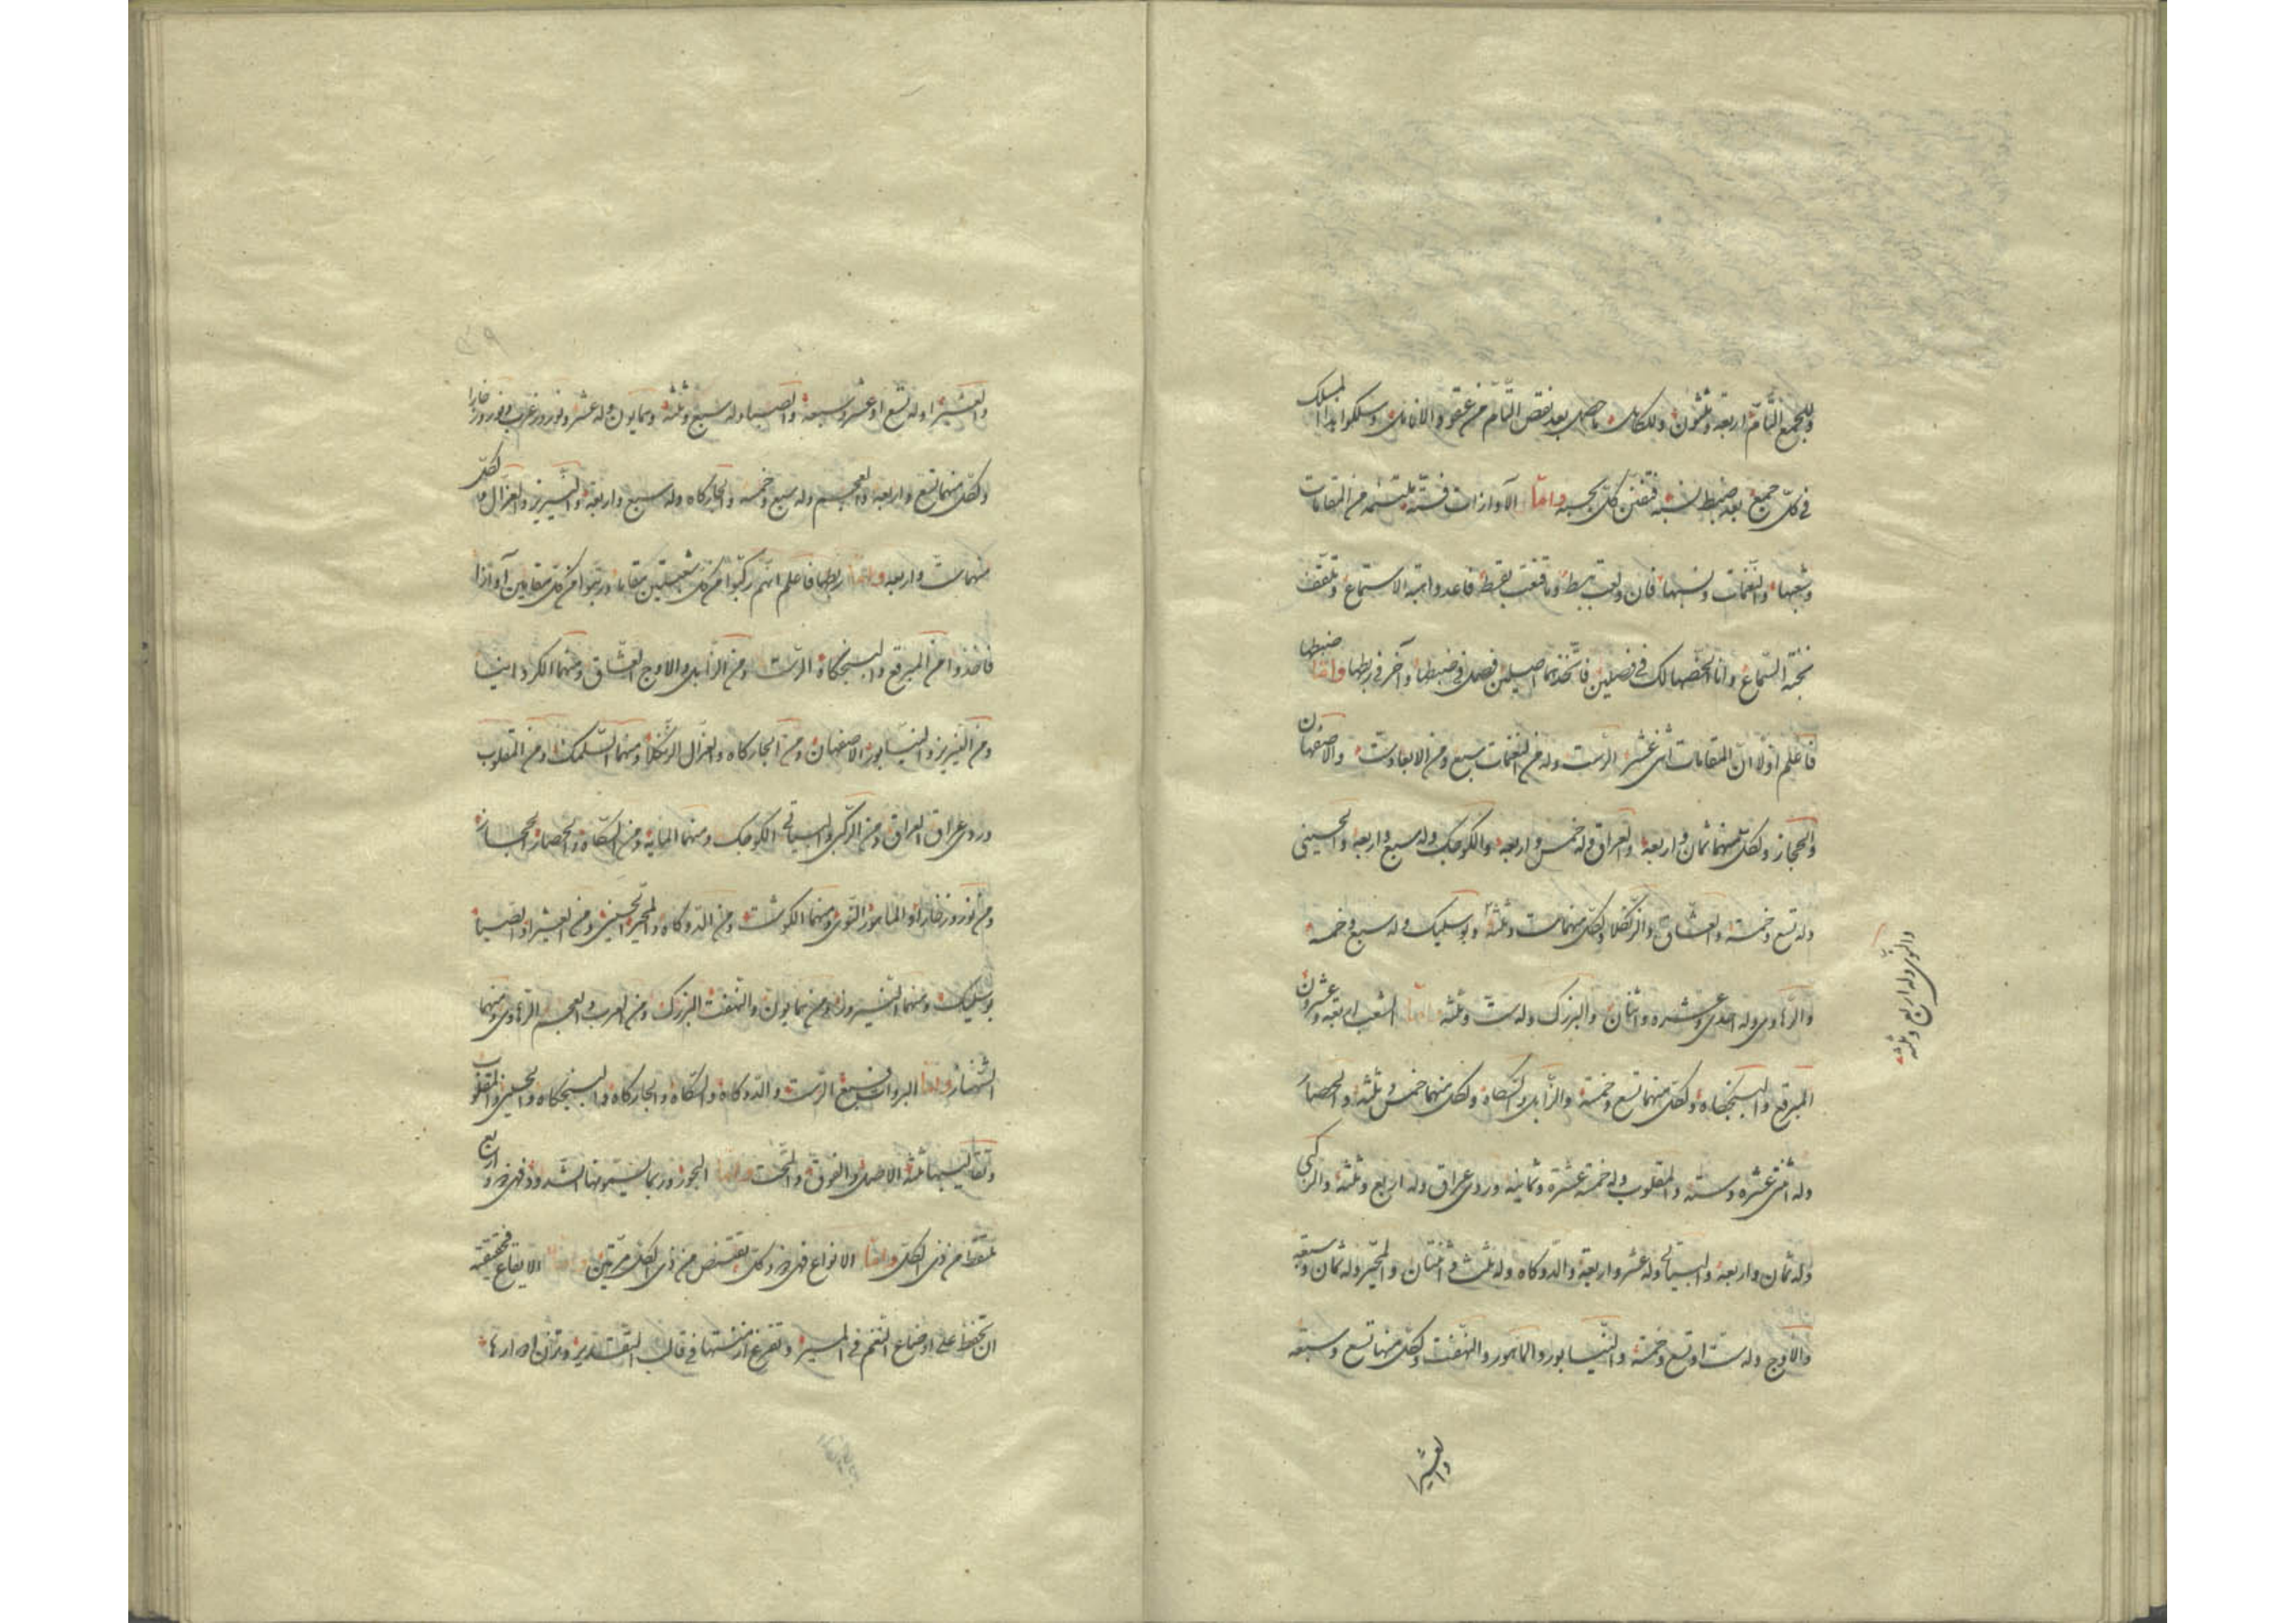 وللجمع التام اربعة وثلثون ولكل ما حصل بعد نقص التام من وسلكوا هذا المسلك
في كل جميع بعد ضبط نسبه فتفنن كل بحسبه واما الآوازات فستة ملتئمة من المقامات
وشعبها والنغمات ونسبها فان وما قنعت فاعد واهبة الاستماع وتلقف
نخبة السماع وانا الخصها لك في فصلين فاتخذهما اصيلين فصل في ضبطها وآخر في ربطها واما ضبطها
فاعلم اولا ان المقامات اثنى عشر الرست وله من النغمات سبع ومن الابعاد ست والاصفهان
والحجاز ولكل منهما ثمان واربعة والعراق وله خمس واربعة والكوجك وله سبع واربعة والحسيني
وله تسع وخمسة والعشاق والزنكلا ولكل منهما ست وثلثة وبوسليك وله سبع وخمسة
والنوى وله اربع وثلثة
والرهاوى وله احدى وعشره واثنان والبزرك وله ست وثلثة واما الشعب اربعة وعشرون
المبرقع والبسنجكاه ولكل منهما تسع وخمسة والزابل والسكاه ولكل منهما خمس وثلثة والحصار
وله اثنى عشره وستة والمقلوب وله خمسة عشرة وثمانية وروى عراق وله اربع وثلثة والركبى
وله ثمان واربعة والبياتى وله عشر واربعة والدوكاه وله ثلث واثنتان والمحير وله ثمان وسبعة
والاوج وله ست او تسع وخمسة والنيسابور والماهور والنهفت ولكل منها تسع وسبعة
والعشيرا
والعشيرا وله تسع او عشر وسبعة والصبا وله سبع وثلثة وهمايون وله عشر ونوروز عرب ونوروز خارا
ولكل منهما تسع واربعة والعجم وله سبع وخمسة والجاركاه وله سبع واربعة والنيريز والغزال لكل
منهما ست واربعة واما ربطها فاعلم انهم ركبوا من كل شعبتين مقاما ورتبوا من كل مقامين آوازا
فاخذوا من المبرقع والبسنجكاه الرست ومن الزابل والاوج العشاق ومنهما الكردانيا
ومن النيريز والنيسابور الاصفهان ومن الجاركاه والغزال الزنكلا ومنهما السلمك ومن المقلوب
وروى عراق العراق ومن الركبى والبياتى الكوجك ومنهما المايه ومن السكاه والحصار الحجاز
ومن نوروز خارا والماهور النوى ومنهما الكوشت ومن الدوكاه والمحير الحسينى ومن العشيرا والصبا
بوسليك ومنهما النيروز ومن همايون والنهفت البزرك ومن العرب والعجم الرهاوى ومنهما
الشهناز واما البردوات فسبع الرست والدوكاه والسكاه والجاركاه والبسنجكاه والحسينى والمقلوب
وتقاليبها ثلثة الاصل والفوق والتحت واما البحور وربما يسمونها الشدود فهى ضروب اربع
تلتقط من ذى الكل واما الانواع فهى ضروب كل يقتنص من ذى الكل مرتين واما الايقاع فحقيقته
ان تحفظ على اوضاع النغم في المسير وتفرغ ازمنتها في قالب التقدير وتزن ادوارها